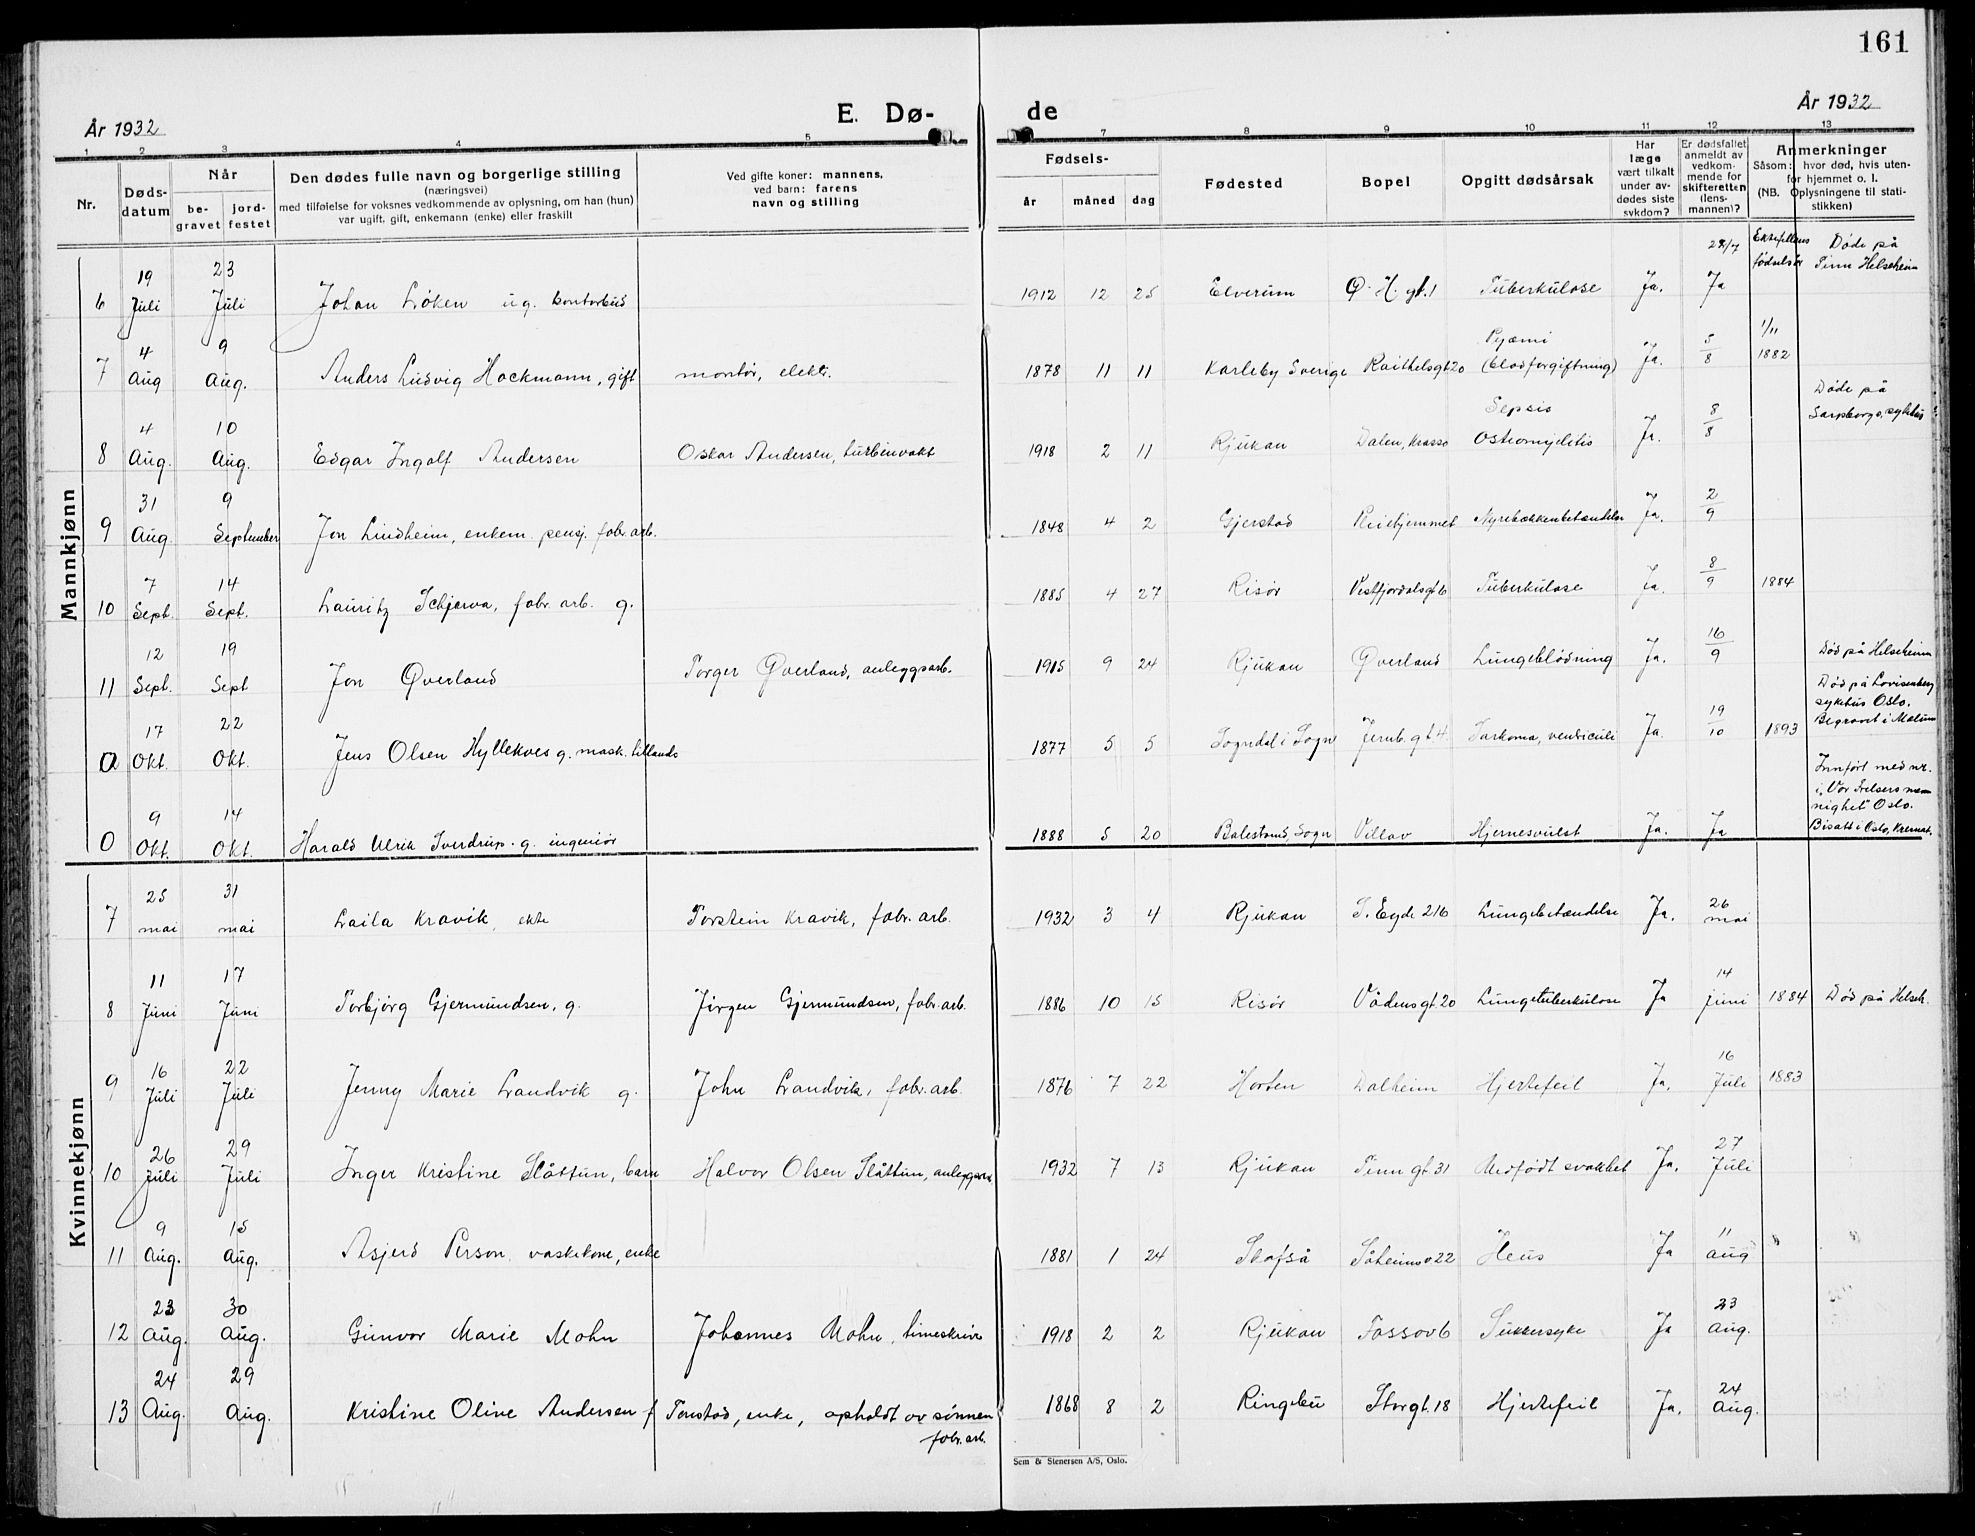 161
År 1932
E. Dø-
de
År 1932
1 2 3 4 5 7 8 9 10 11 12 13
Nr.
Døds-
datum
Når
be-
gravet
jord-
festet
Den dødes fulle navn og borgerlige stilling
(næringsvei)
med tilføielse for voksnes vedkommende av oplysning, om han (hun)
var ugift, gift, enkemann (enke) eller fraskilt
Ved gifte koner: mannens,
ved barn: farens
navn og stilling
Fødsels-
år måned dag
Fødested
Bopel
Opgitt dødsårsak
Har
læge
vært tilkalt
under av-
dødes siste
sykdom?
Er dødsfallet
anmeldt av
vedkom-
mende for
skifteretten
(lens-
mannen)?
Anmerkninger
Såsom: hvor død, hvis uten-
for hjemmet o. l.
(NB. Oplysningene til stati-
stikken)
Ektefellens
fødselsår
Mannkjønn
6 19 Juli 23 Juli Johan Løken ug. kontorbud 1912 12 25 Elverum Ø. H. gt. 1 Tuberkulose Ja. 28/7 Ja Døde på Tinn Helseheim
7 4 Aug 9 Aug. Anders Ludvig Hackmann, gift montør, elektr. 1878 11 11 Karleby Sverige Raithelsgt 20 Pyæmi (blodforgiftning) Ja. 5/8 1/11 1882
8 4 Aug. 10 Aug. Edgar Ingolf Andersen Oskar Andersen, turbinvakt 1918 2 11 Rjukan Dalen, Krosso Sepsis Osteomyelitis Ja. 8/8 Døde på Sarpborgs sykehus
9 31 Aug. 9 September Jon Lindheim, enkem. pensj. fabr. arb. 1848 4 2 Gjerstad Pleiehjemmet Nyrebekkenbetændelse Ja. 2/9
10 7 Sept. 14 Sept. Lauritz Schjerva, fabr. arb. g. 1885 4 27 Risør Vestfjordalsgt 6 Tuberkulose Ja. 8/9 1884
11 12 Sept. 19 Sept Jon Øverland Torger Øverland, anleggsarb. 1915 9 24 Rjukan Øverland Lungeblødning Ja. 16/9 Død på Helseheim
0 17 Okt. 22 Okt. Jens Olsen Hyllekves g. mask. 1877 5 5 Sogndal i Sogn Jernb. gt 4 Sarkoma, ventriculi Ja. 19/10 1893 Død på Lovisenberg sykehus Oslo. Begravet i Mælum
0 9 Okt. 14 Okt. Harald Ulrik Sverdrup. g. ingeniør 1888 5 20 Balestrand, Sogn Villav Hjernesvulst Ja. Ja Innført med nr. i "Vor Frelsers menighet" Oslo. Bisatt i Oslo, Kremat.
Kvinnekjønn
7 25 mai 31 mai Laila Kravik, ekte Torstein Kravik, fabr. arb. 1932 3 4 Rjukan S. Eyde 216 Lungebetændelse Ja. 26 mai
8 11 Juni 17 Juni Torbjørg Gjermundsen, g. Jørgen Gjermundsen, fabr. arb. 1886 10 15 Risør Vådensgt. 20 Lungetuberkulose Ja 14 Juni 1884 Død på Helseh.
9 16 Juli 22 Juli Jenny Marie Landvik g. John Landvik, fabr. arb. 1876 7 22 Horten Dalheim Hjertefeil Ja. 16 Juli 1883
10 26 Juli 29 Juli Inger Kristine Slåttun, barn Halvor Olsen Slåttun, anleggsarb. 1932 7 13 Rjukan Tinn gt. 31 Medfødt svakhet Ja. 27 Juli
11 9 Aug. 15 Aug. Asjerd Person, vaskekone, enke 1881 1 24 Skafså Såheimsv 22 Ileus Ja 11 aug
12 23 Aug. 30 Aug. Gunvor Marie Mohn Johannes Mohn, timeskriver 1918 2 2 Rjukan Fossov 6 Sukkersyke Ja 23 Aug.
13 24 Aug. 29 Aug. Kristine Oline Andersen f Tonstad, enke, opholdt av sønnen fabr. arb. 1868 8 2 Ringebu Storgt. 18 Hjertefeil Ja. 24 Aug.
Sem & Stenersen A/S, Oslo.